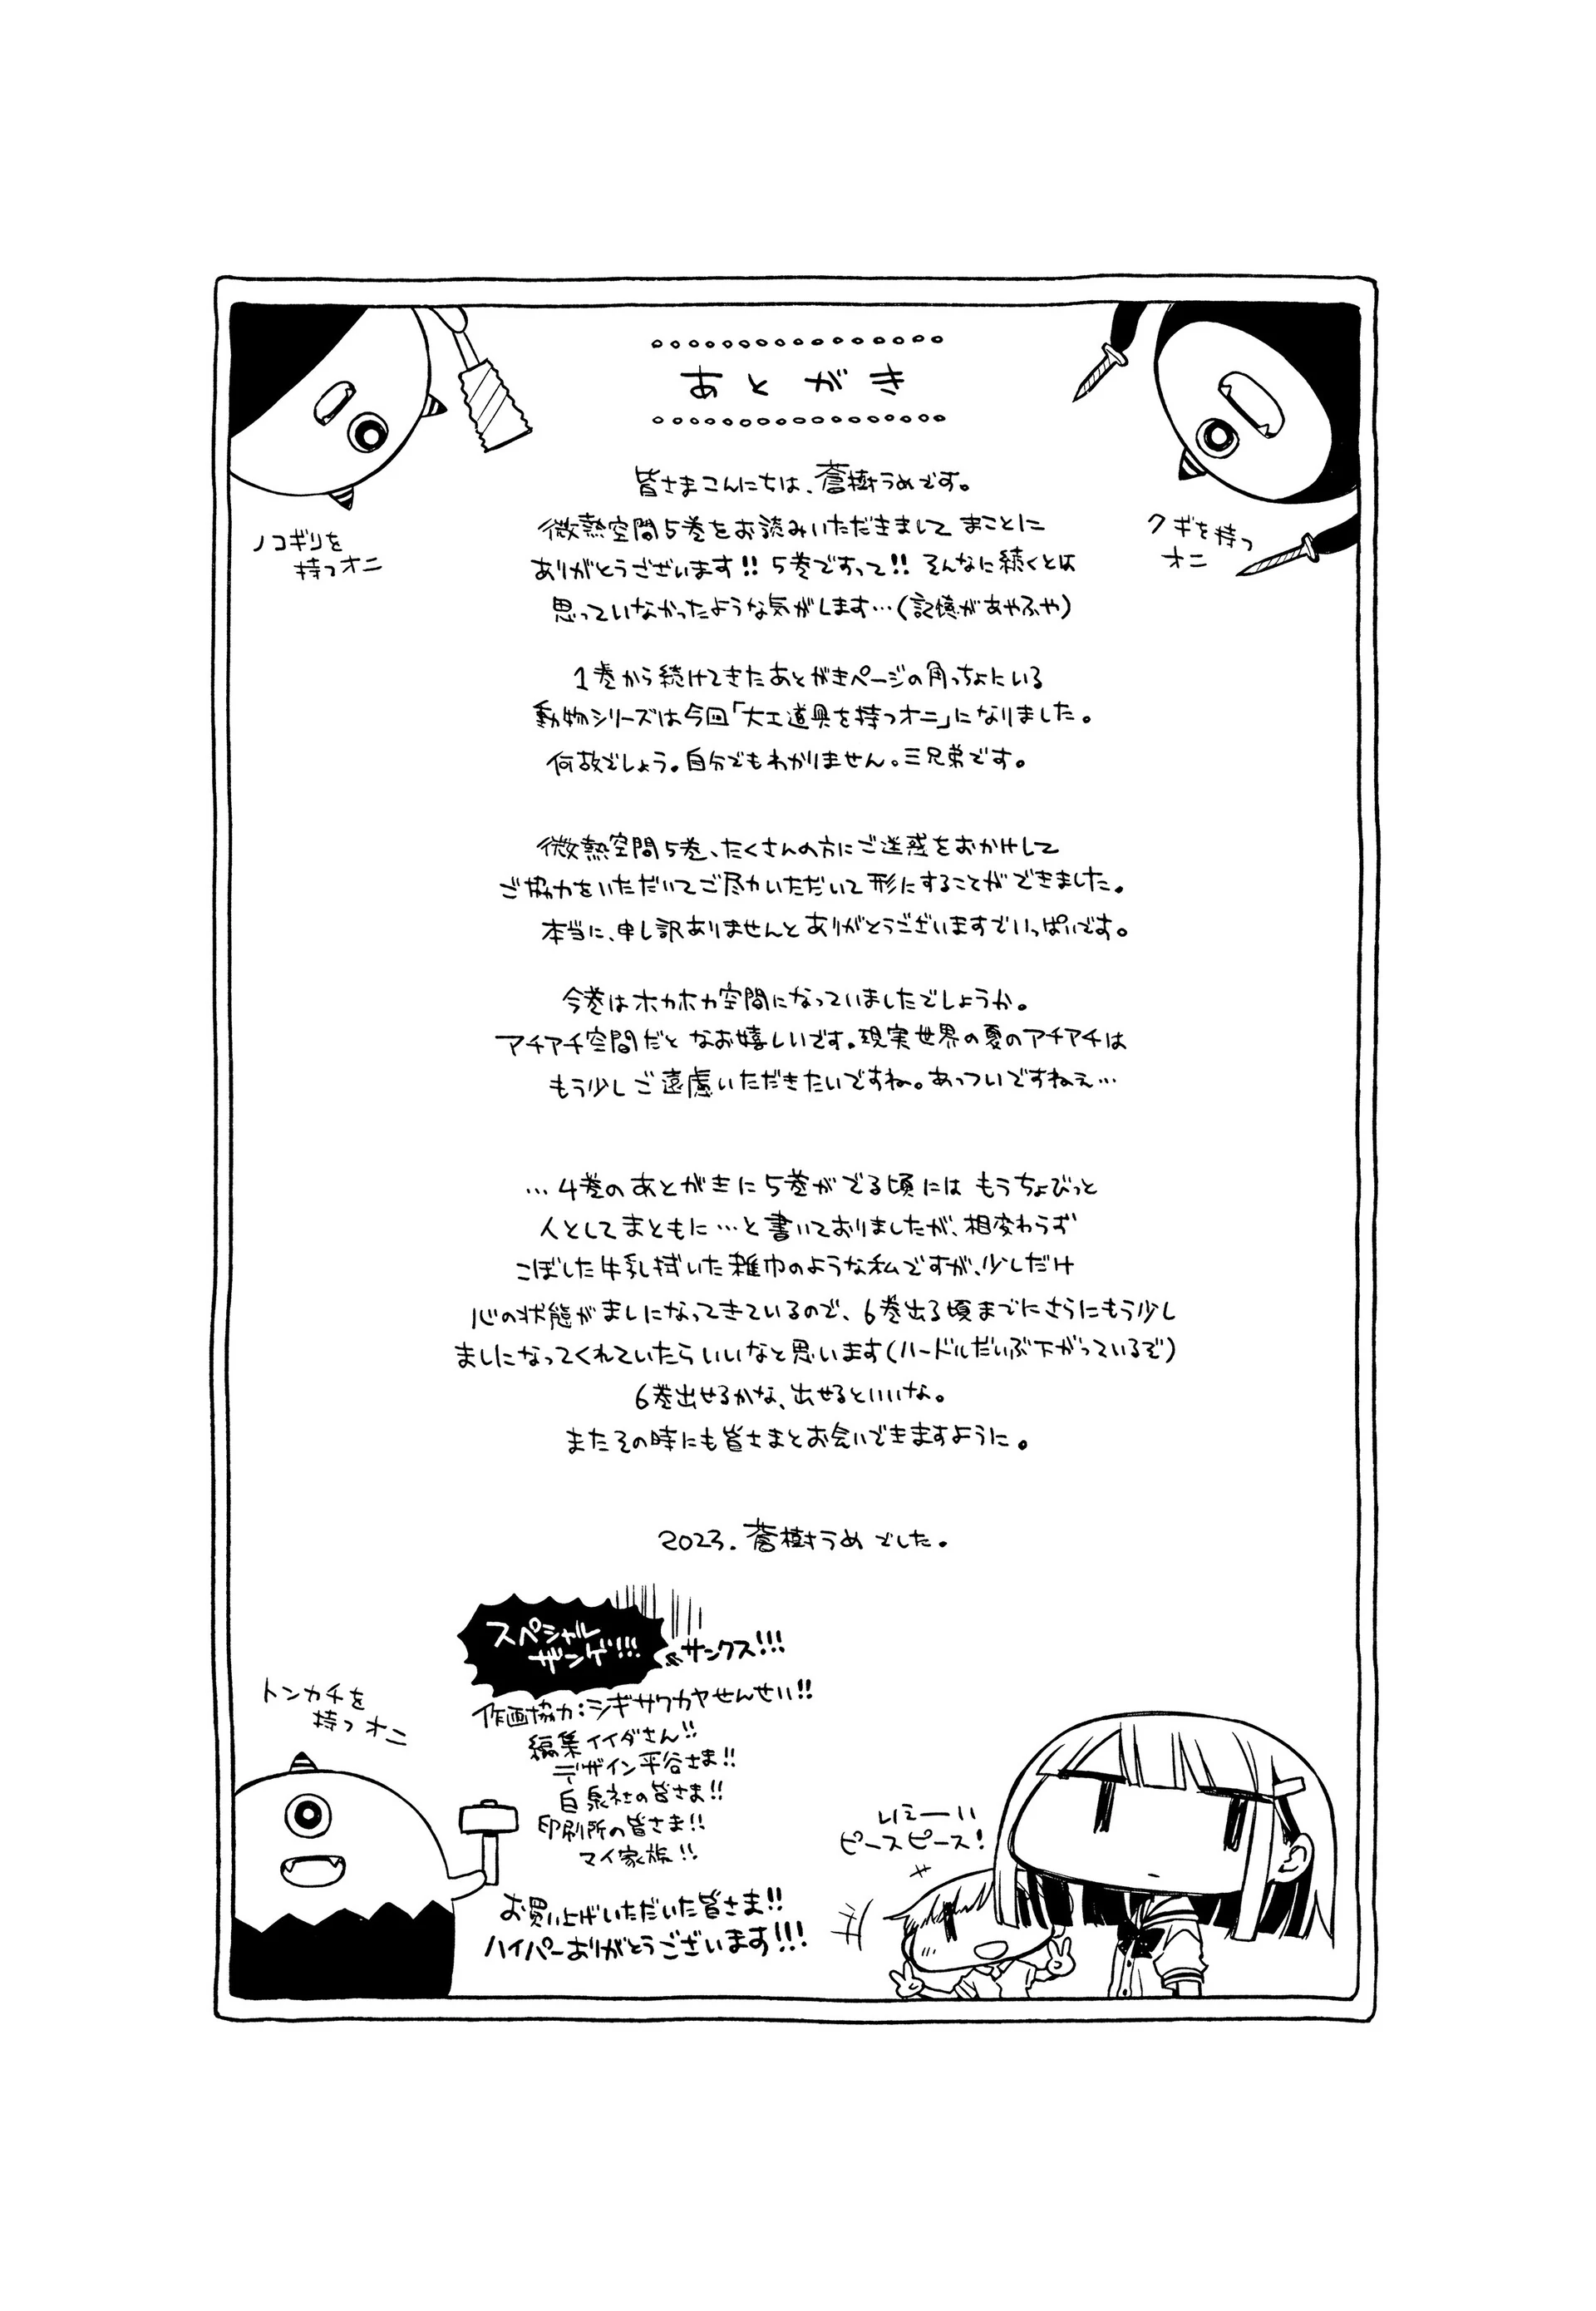 あとがき
皆さまこんにちは、蒼樹うめです。
微熱空間5巻をお読みいただきまして まことに
ありがとうございます!! 5巻ですって!! そんなに続くとは
思っていなかったような気がします…(記憶があやふや)
1巻から続けてきたあとがきページの角っちょにいる
動物シリーズは今回「大工道具を持つオニ」になりました。
何故でしょう。自分でもわかりません。三兄弟です。
微熱空間5巻、たくさんの方にご迷惑をおかけして
ご協力をいただいてご尽力いただいて形にすることができました。
本当に、申し訳ありませんとありがとうございますでいっぱいです。
今巻はホカホカ空間になっていましたでしょうか。
アチアチ空間だと なお嬉しいです。現実世界の夏のアチアチは
もう少しご遠慮いただきたいですね。あっついですねぇ…
…4巻のあとがきに5巻がでる頃には もうちょびっと
人としてまともに…と書いておりましたが、相変わらず
こぼした牛乳拭いた雑巾のような私ですが、少しだけ
心の状態がましになってきているので、6巻出る頃までにさらにもう少し
ましになってくれていたらいいなと思います(ハードルだいぶ下がっているぞ)
6巻出せるかな、出せるといいな。
またその時にも皆さまとお会いできますように。
2023. 蒼樹うめ でした。
ノコギリを
持つオニ
クギを持つ
オニ
トンカチを
持つオニ
スペシャル
ザンゲ!!!
&サンクス!!!
作画協力:シギサワカヤせんせい!!
編集イイダさん!!
デザイン平谷さま!!
白泉社の皆さま!!
印刷所の皆さま!!
マイ家族!!
お買い上げいただいた皆さま!!
ハイパーありがとうございます!!!
いえーい
ピースピース!